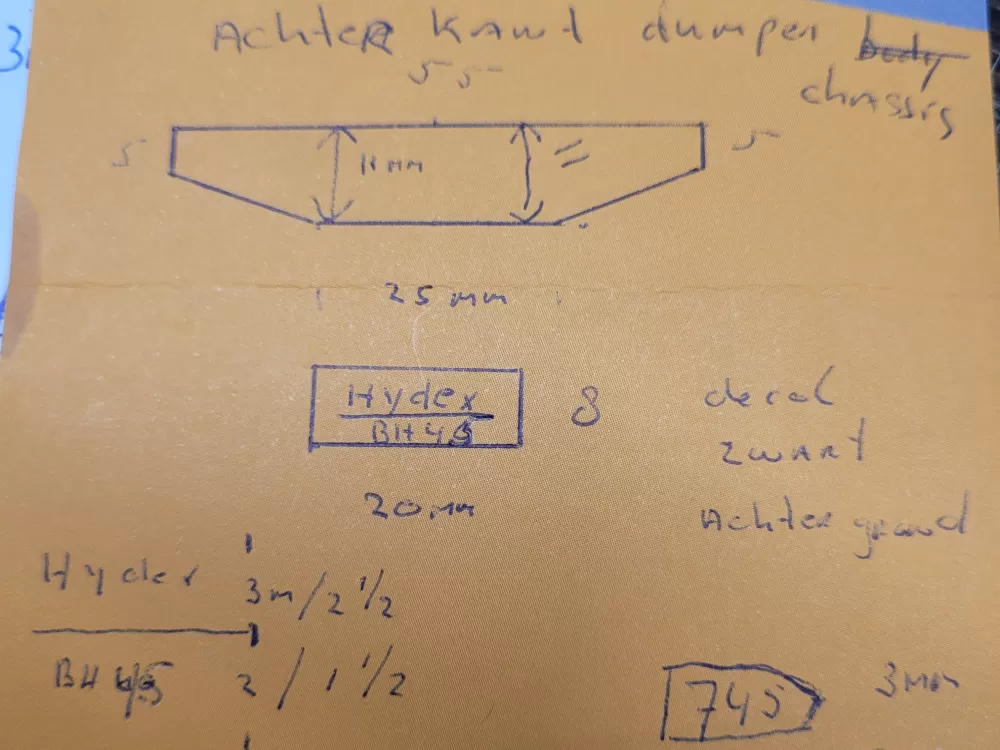 AchteR Kant dumper body
chassis
55
5
11 mm
=
5
25 mm
Hydex
BH45
8
decal
zwart
Achtergrond
20 mm
Hydex 3m/2 1/2
BH 45 2 / 1 1/2
745
3mm